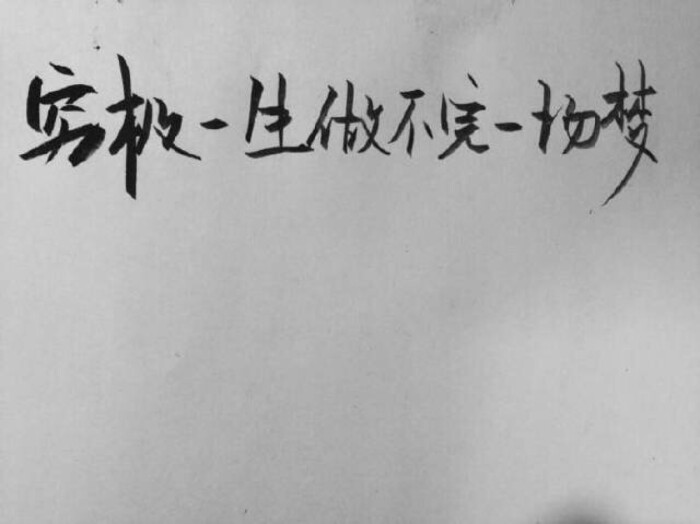 穷极一生做不完一场梦